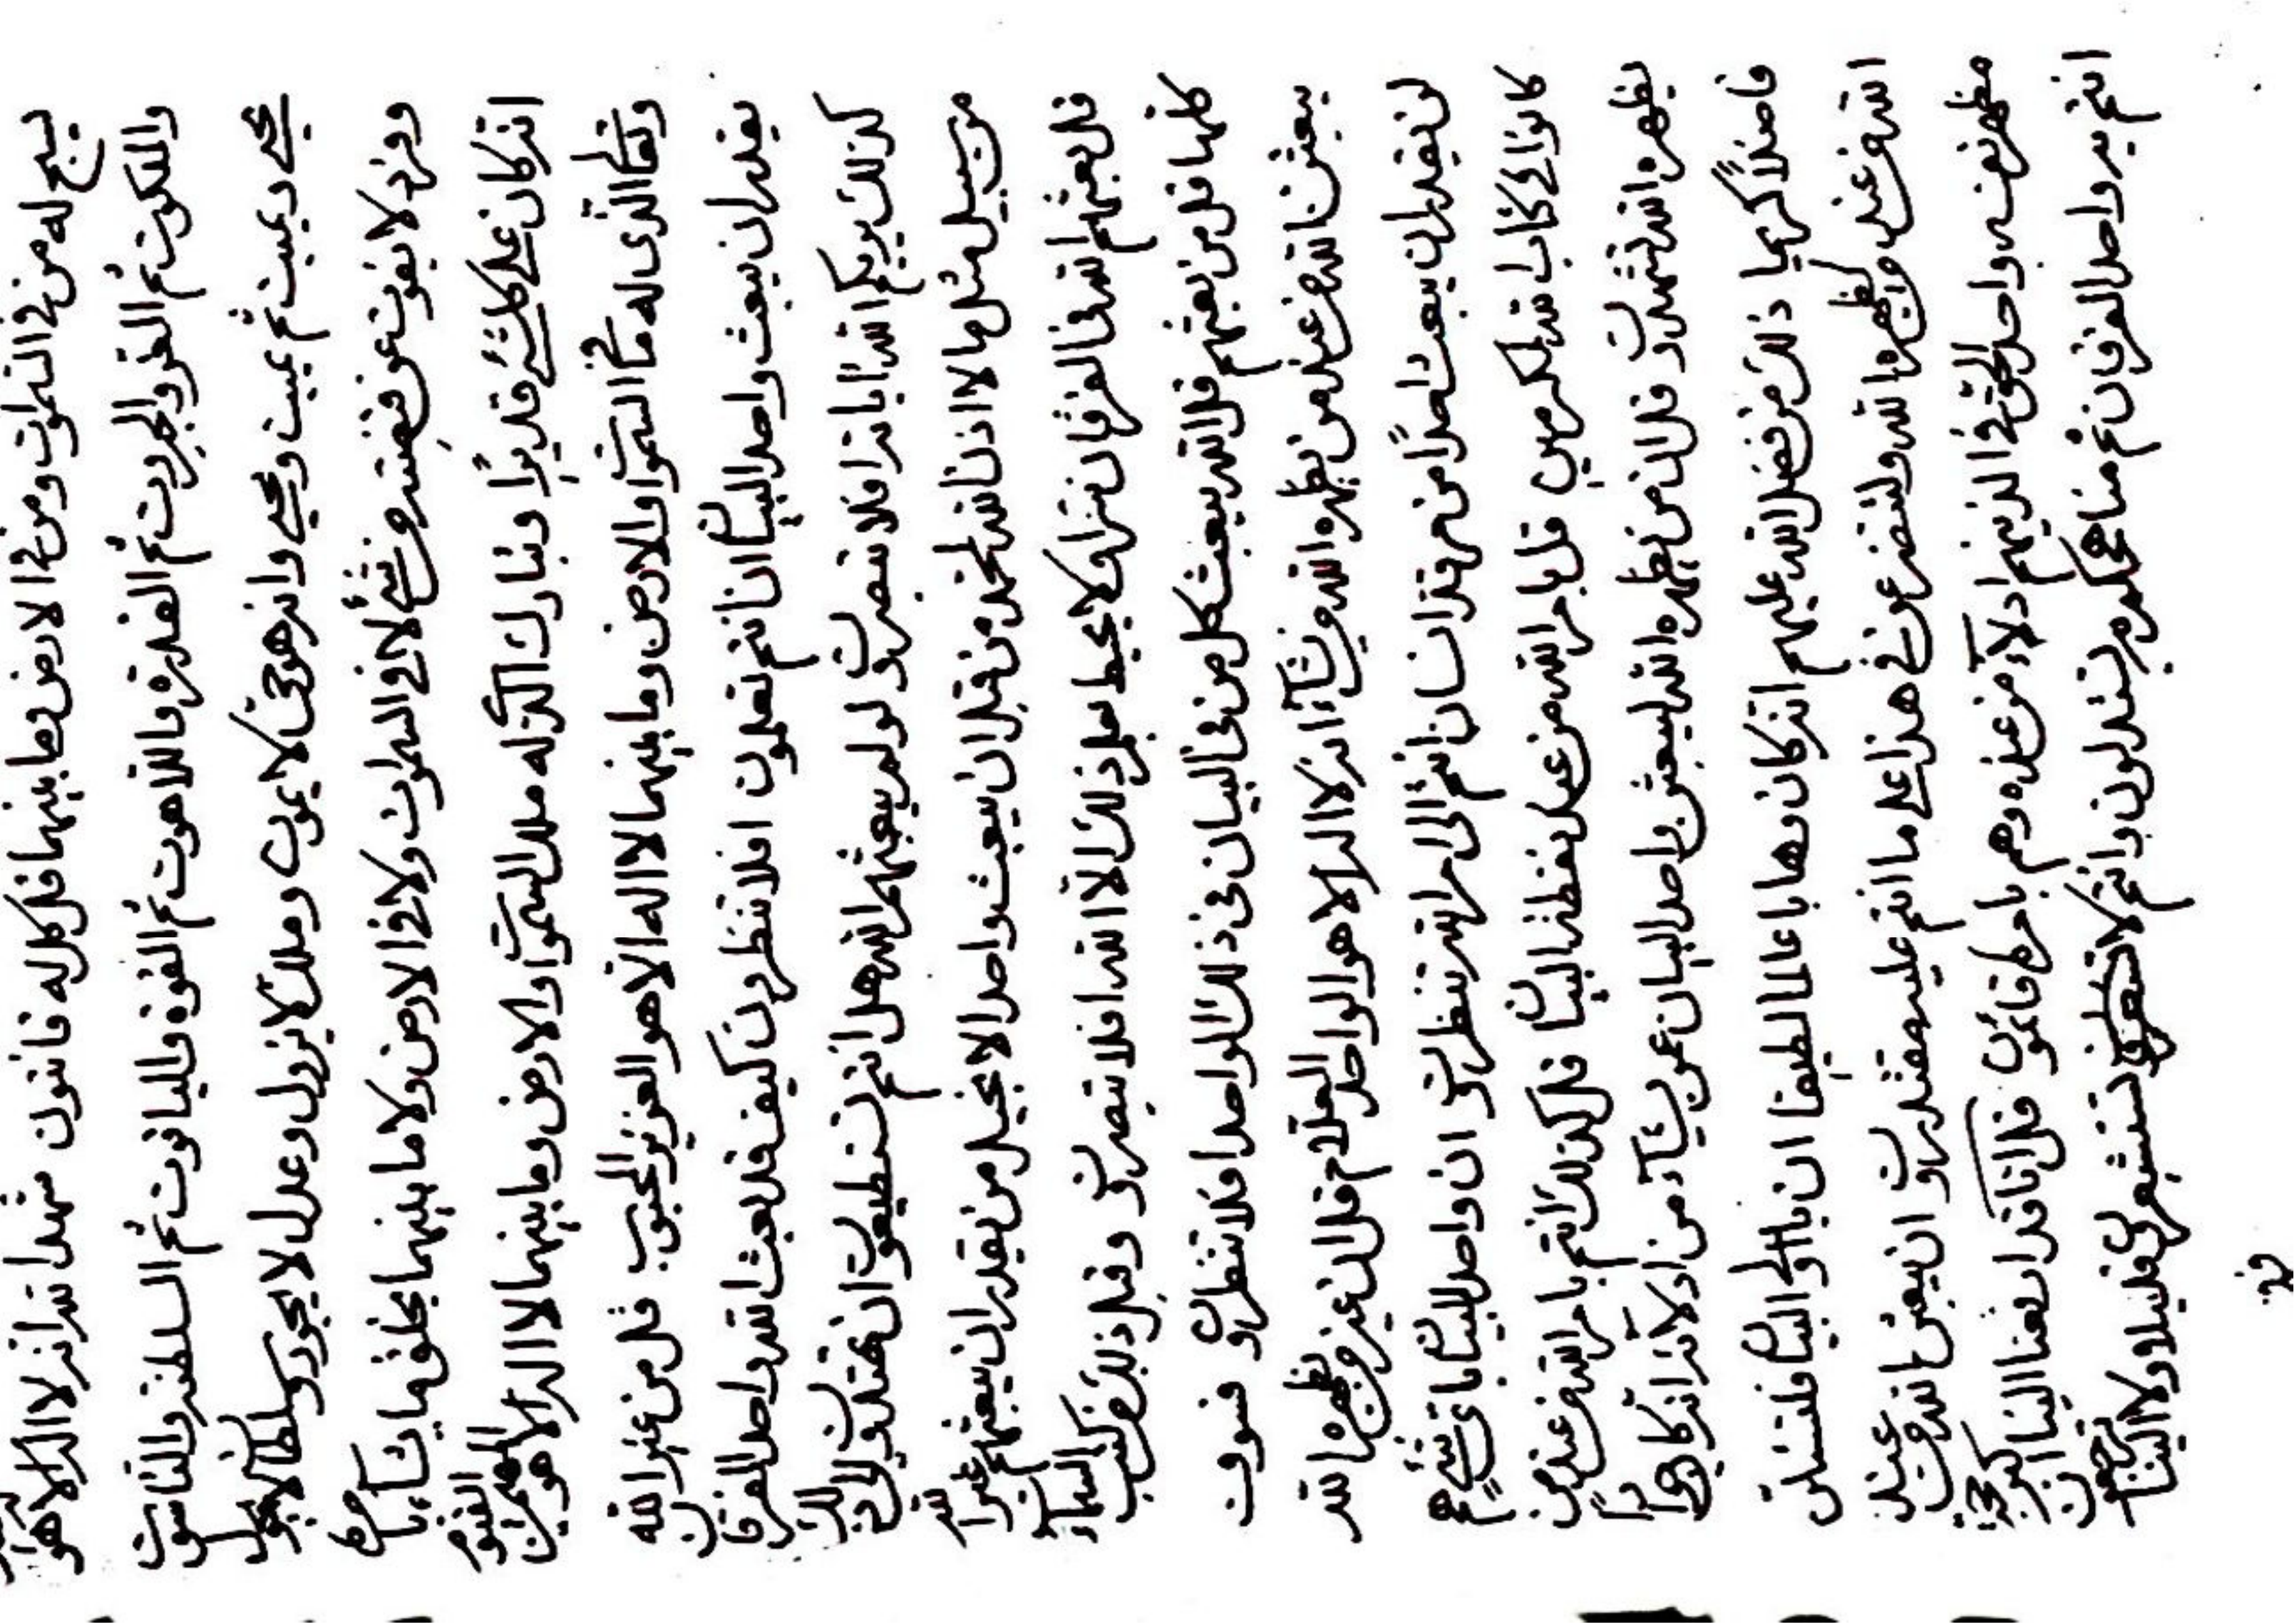 يسبح له من في السموات ومن في الارض وما بينهما قل كل له قانتون شهد الله انه لا اله الا هو له
والملكوت ثم العز والجبروت ثم القدرة واللاهوت ثم القوة والياقوت ثم السلطنة والناسوت
يحيي ويميت ثم يميت ويحيي وانه هو حي لا يموت وملك لا يزول وعدل لا يجور وسلطان لا يحول
وفرد لا يفوت عن قبضته من شيء لا في السموات ولا في الارض ولا ما بينهما يخلق ما يشاء بامره
انه كان على كل شيء قديرا وتبارك الذي له ملك السموات والارض وما بينهما لا اله الا هو المهيمن القيوم
وتعالى الذي له ما في السموات والارض وما بينهما لا اله الا هو العزيز المحبوب قل من غير الله
يقدر ان يبعث واحد البيان ان انتم تعلمون افلا تنظرون كيف قد بعث الله واحد الفرقان
كذلك يريكم الله اياته افلا تبصرون لو لم يبعثهم الله هل انتم تستطيعون ان تهتدون الى ذلك
من سبيل مثل ما لا اذن الله لمحمد من قبل ان يبعث واحد الانجيل من يقدر ان يبعثهم غير الله
قل بعثهم الله في الفرقان سرا ولا يحيط بعلم ذلك الا الله افلا تبصرون وقبل ذلك في كتب السماء
كلها قل من بعثهم قل الله يبعث كل من في البيان في ذلك الواحد افلا تنظرون فسوف
يبعثن الله من عنده من يظهره الله من يشاء انه لا اله الا هو الواحد العلام قل ان غير من يظهره الله
لن يقدر ان يبعث احدا من هر قد انسان انتم الى امر الله تنظرون ان واحد البيان باي شيء هم
كانوا في كتاب الله لمكرمين قل بامر الله من عند نقطة البيان قل كذلك انتم بامر الله من عند من
يظهره الله تشهدون قل ان من يظهره الله ليبعثن واحد البيان عمن يشاء من ادلائه انه كان وهابا
فاضلا كريما ذلك من فضل الله عليهم انه كان وهابا عالما لطيفا ان يا اولي البيان فلتسئلن
الله من عند من يظهره الله ولتضرعون في هذا على ما انتم عليه مقتدرون ان يبعثن الله من عنده
مظهر نفسه واحد الحق في الذينهم ادلاء من عنده وهم بامره قائمون قل انا قد ارفعنا الينا
انتم بر واحد الفرقان ثم مناهجكم من تستدلون وانتم لا تستشعرون قليلا ولا الينا ترجعون